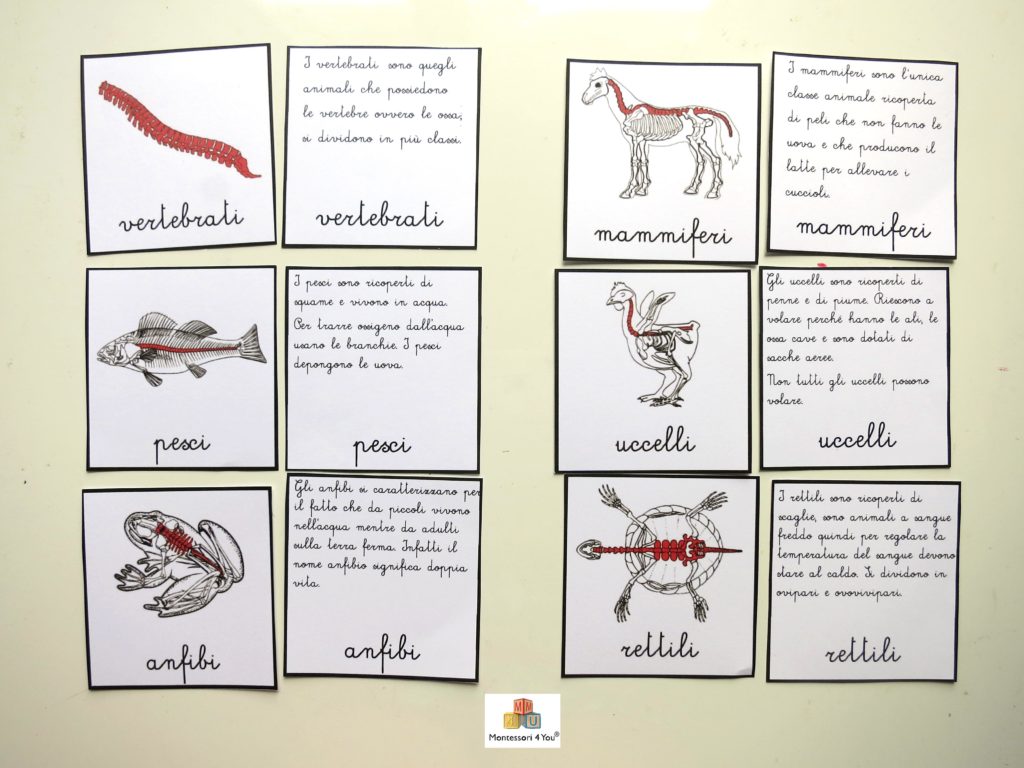 vertebrati
I vertebrati sono quegli
animali che possiedono
le vertebre ovvero le ossa,
si dividono in più classi.
vertebrati
mammiferi
I mammiferi sono l'unica
classe animale ricoperta
di peli che non fanno le
uova e che producono il
latte per allevare i
cuccioli.
mammiferi
pesci
I pesci sono ricoperti di
squame e vivono in acqua.
Per trarre ossigeno dall'acqua
usano le branchie. I pesci
depongono le uova.
pesci
uccelli
Gli uccelli sono ricoperti di
penne e di piume. Riescono a
volare perché hanno le ali, le
ossa cave e sono dotati di
sacche aeree.
Non tutti gli uccelli possono
volare.
uccelli
anfibi
Gli anfibi si caratterizzano per
il fatto che da piccoli vivono
nell'acqua mentre da adulti
sulla terra ferma. Infatti il
nome anfibio significa doppia
vita.
anfibi
rettili
I rettili sono ricoperti di
scaglie, sono animali a sangue
freddo quindi per regolare la
temperatura del sangue devono
stare al caldo. Si dividono in
ovipari e ovovivipari.
rettili
M M
4 U
Montessori 4 You®